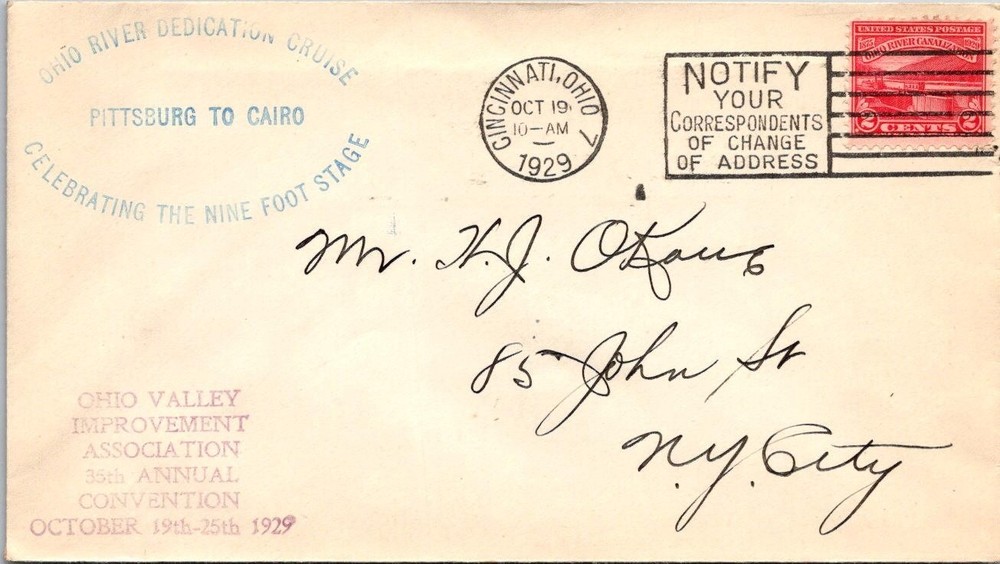 OHIO RIVER DEDICATION CRUISE
PITTSBURG TO CAIRO
CELEBRATING THE NINE FOOT STAGE
CINCINNATI, OHIO 7
OCT 19
10-AM
1929
NOTIFY
YOUR
CORRESPONDENTS
OF CHANGE
OF ADDRESS
UNITED STATES POSTAGE
1875 1929
OHIO RIVER CANALIZATION
2 CENTS 2
Mr. H. J. OKane
85 John St
N.Y. City
OHIO VALLEY
IMPROVEMENT
ASSOCIATION
35th ANNUAL
CONVENTION
OCTOBER 19th-25th 1929